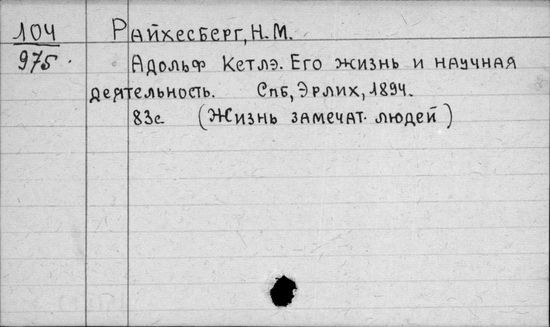 104 Райхесберг, Н.М.
975. Адольф Кетлэ. Его жизнь и научная
деятельность. Спб, Эрлих, 1894.
83с. (Жизнь замечат. людей)